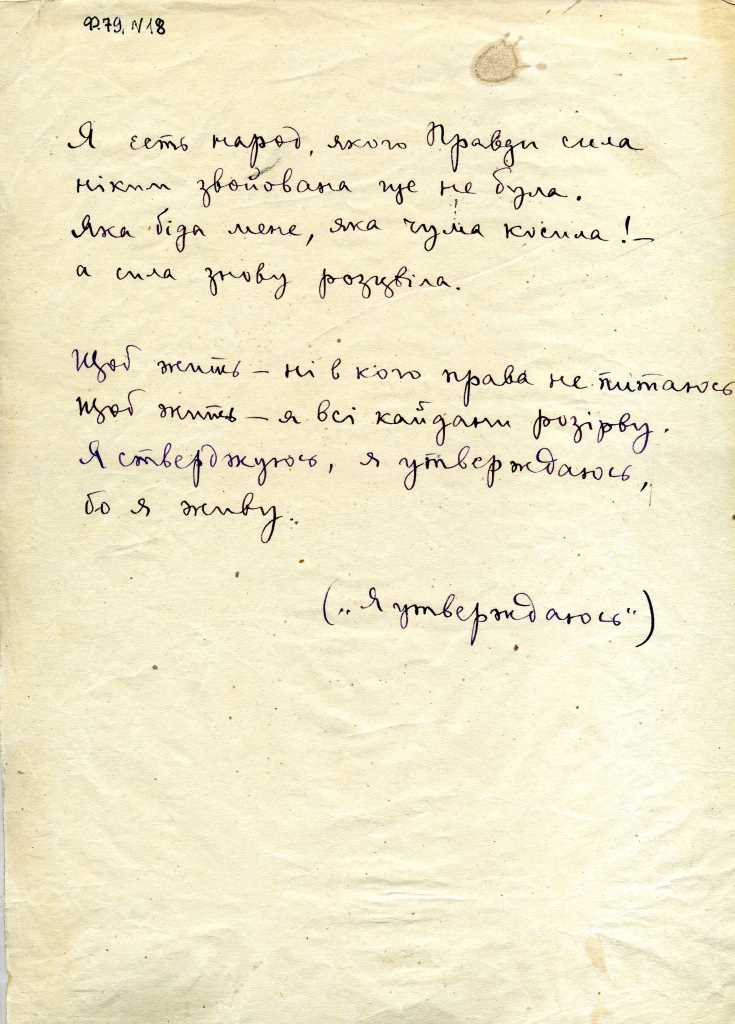 Ф.79, N18
Я єсть народ, якого Правди сила
ніким звойована ще не була.
Яка біда мене, яка чума косила! –
а сила знову розцвіла.
Щоб жить – ні в кого права не питаюсь
Щоб жить – я всі кайдани розірву.
Я стверджуюсь, я утверждаюсь,
бо я живу.
(„Я утверждаюсь“)